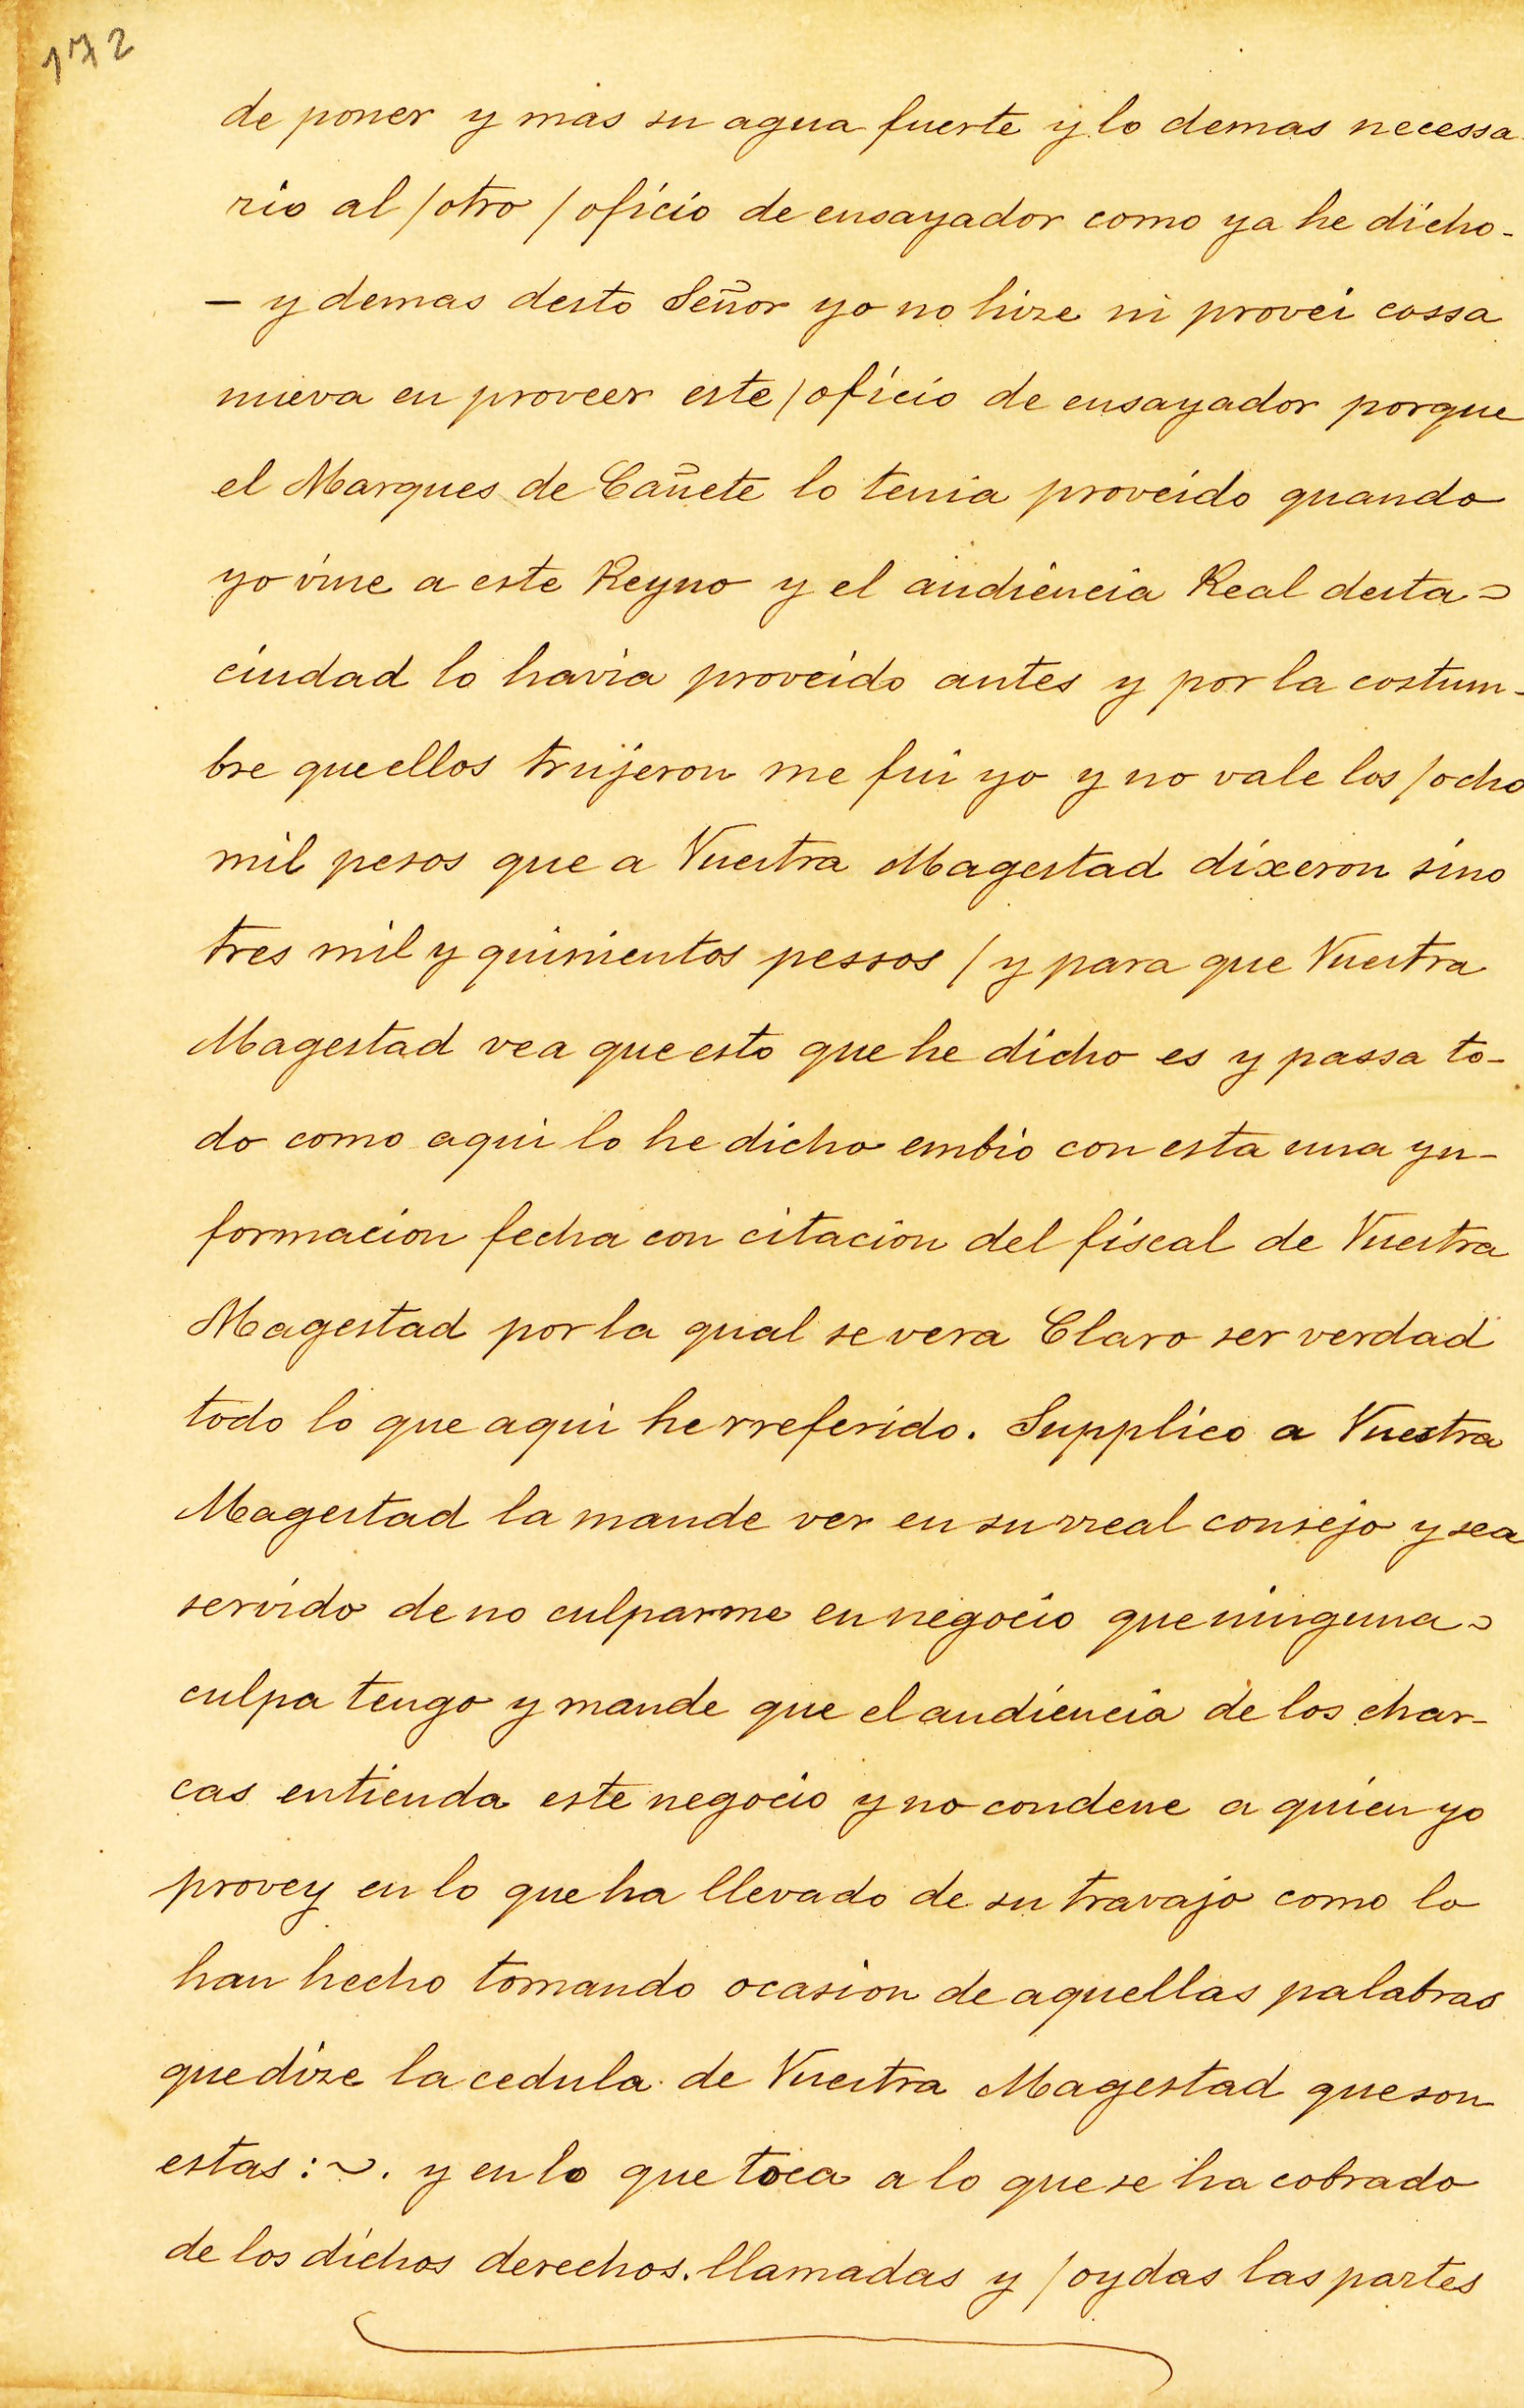 172
de poner y mas su agua fuerte y lo demas necessa-
rio al /otro /oficio de ensayador como ya he dicho-
– y demas desto Señor yo no hize ni provei cossa
nueva en proveer este /oficio de ensayador porque
el Marques de Cañete lo tenia proveido quando
yo vine a este Reyno y el audiencia Real desta=
ciudad lo havia proveido antes y por la costum-
bre que ellos trujeron me fui yo y no vale los /ocho
mil pesos que a Vuestra Magestad dixeron sino
tres mil y quinientos pessos / y para que Vuestra
Magestad vea que esto que he dicho es y passa to-
do como aqui lo he dicho embio con esta una yn-
formacion fecha con citacion del fiscal de Vuestra
Magestad por la qual se vera Claro ser verdad
todo lo que aqui he rreferido. Supplico a Vuestra
Magestad la mande ver en su rreal consejo y sea
servido de no culparme en negocio que ninguna=
culpa tengo y mande que el audiencia de los char-
cas entienda este negocio y no condene a quien yo
provey en lo que ha llevado de su travajo como lo
han hecho tomando ocasion de aquellas palabras
que dize la cedula de Vuestra Magestad que son
estas :~. y en lo que toca a lo que se ha cobrado
de los dichos derechos. llamadas y /oydas las partes